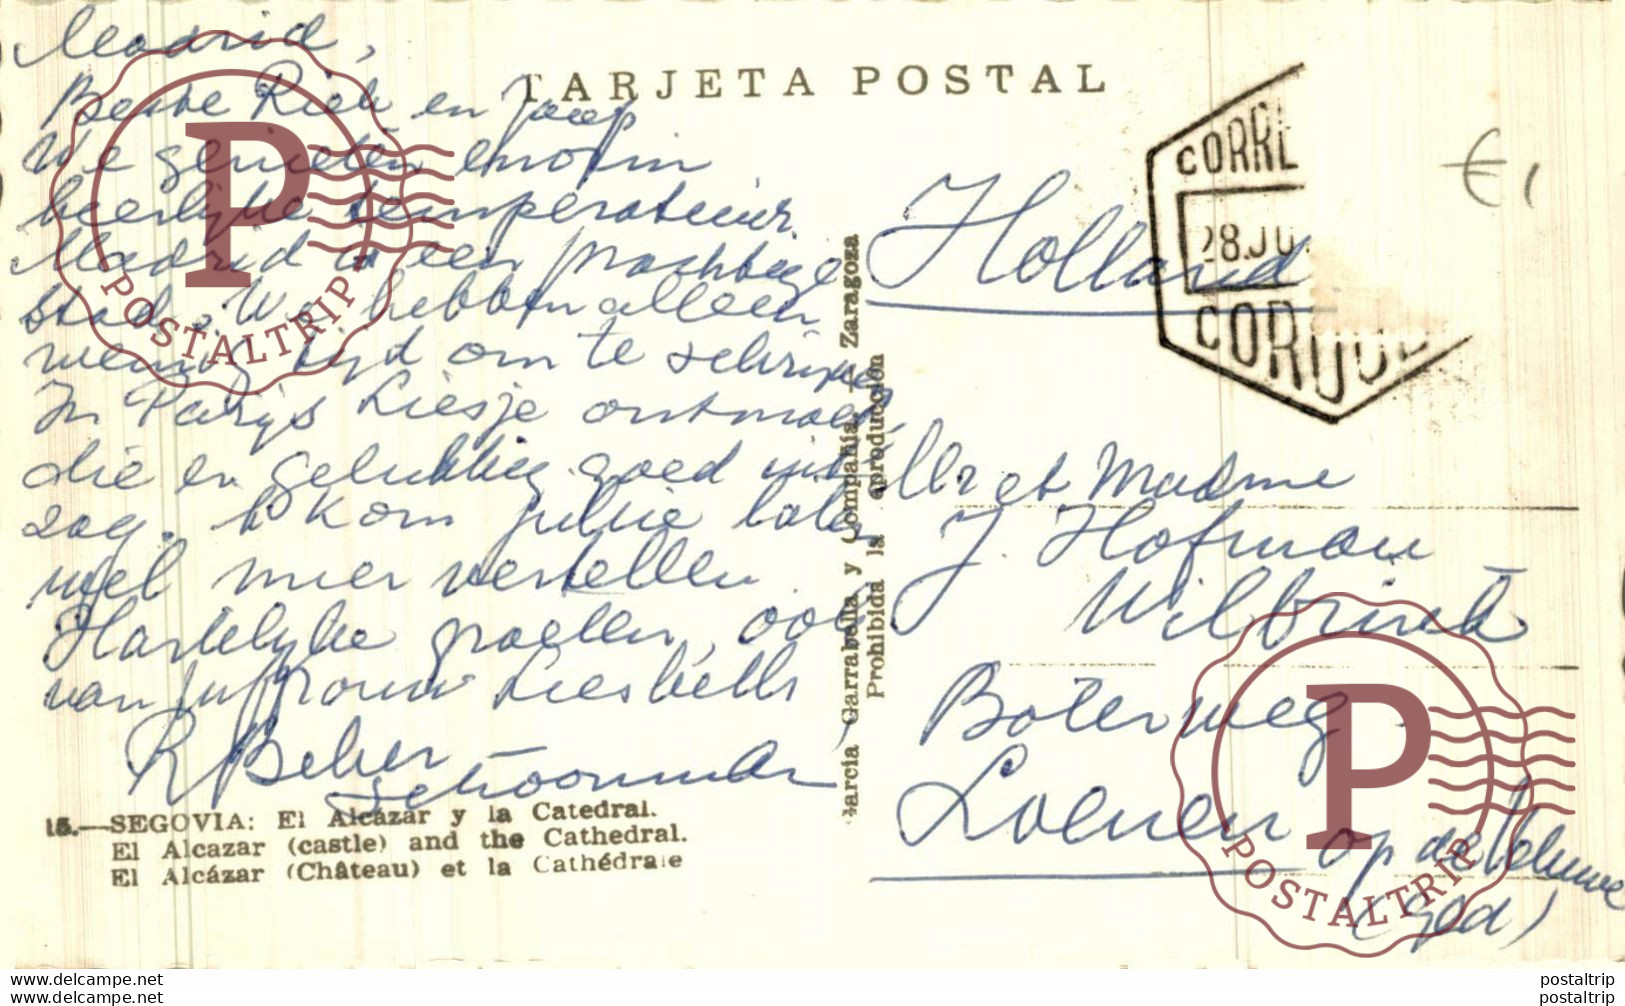 Madrid,
Beste Riek en Jaap
We genieten enorm
heerlijke temperatuur.
Madrid is een prachtige
stad. We hebben alleen
weinig tijd om te schrijven
In Parijs Liesje ontmoet
die er gelukkig goed uit
zag. Ik kom jullie later
wel meer vertellen
Hartelijke groeten, ook
van Juffrouw Liesbeth
R Beker
Schoonman
15.—SEGOVIA: El Alcázar y la Catedral.
El Alcazar (castle) and the Cathedral.
El Alcázar (Château) et la Cathédrale
TARJETA POSTAL
García Garrabella y Compañía.—Zaragoza
Prohibida la reproducción
CORRE
28.JU
COR
€1
Holland
Mr et Madme
J. Hofman -
Wilbrink
Boterweg
Loenen op de Veluwe
(Gld)
P
POSTALTRIP
P
POSTALTRIP
www.delcampe.net
www.delcampe.net
postaltrip
postaltrip